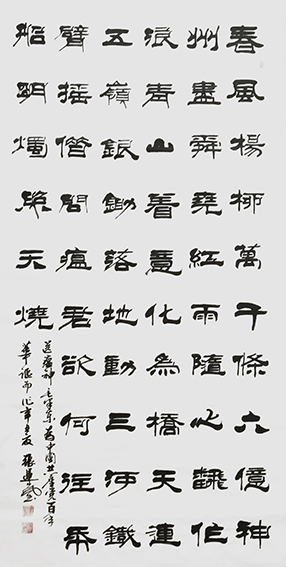 春風楊柳萬千條六億神
州盡舜堯紅雨隨心翻作
浪青山着意化為橋天連
五嶺銀鋤落地動三河鐵
臂搖借問瘟君欲何往紙
船明燭照天燒
送瘟神毛澤東為中國共產黨百年
華誕而作辛丑夏張